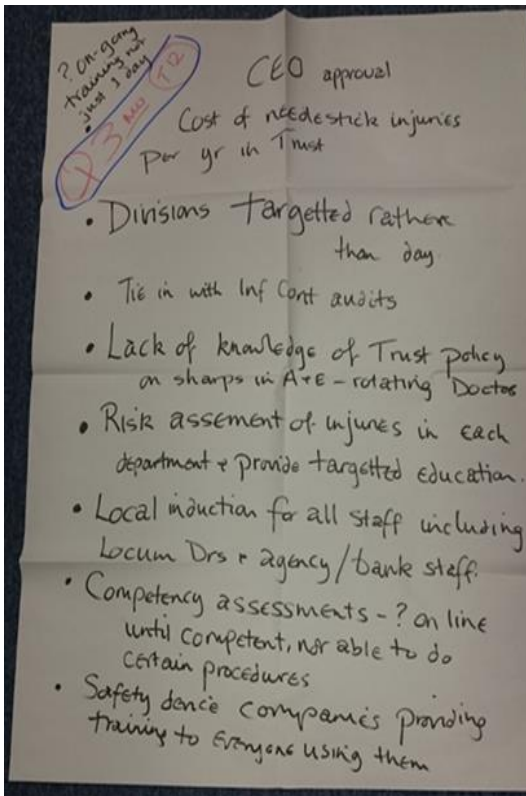 ? on-going
training not
just 1 day
Q3 T12
CEO approval
Cost of needlestick injuries
per yr in Trust
• Divisions targetted rather
than day
• Tie in with Inf Cont audits
• Lack of knowledge of Trust policy
on sharps in A+E - rotating Doctos
• Risk assement of injuries in each
department + provide targetted education.
• Local induction for all staff including
Locum Drs + agency/bank staff.
• Competency assessments - ? on line
until competent, not able to do
certain procedures
• Safety device companies providing
training to everyone using them